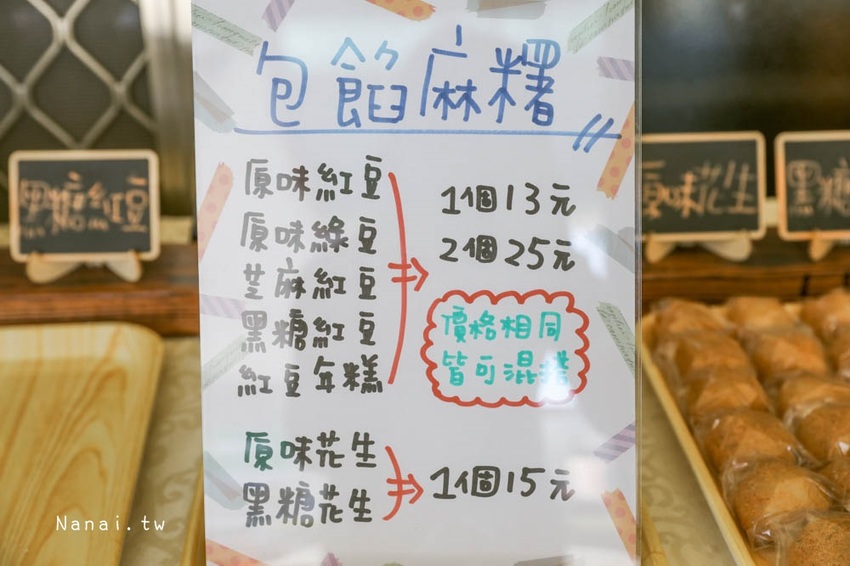 包餡麻糬
原味紅豆
原味綠豆
芝麻紅豆
黑糖紅豆
紅豆年糕
1個13元
2個25元
價格相同
皆可混搭
原味花生
黑糖花生
1個15元
黑糖紅豆
原味花生
黑糖
Nanai.tw